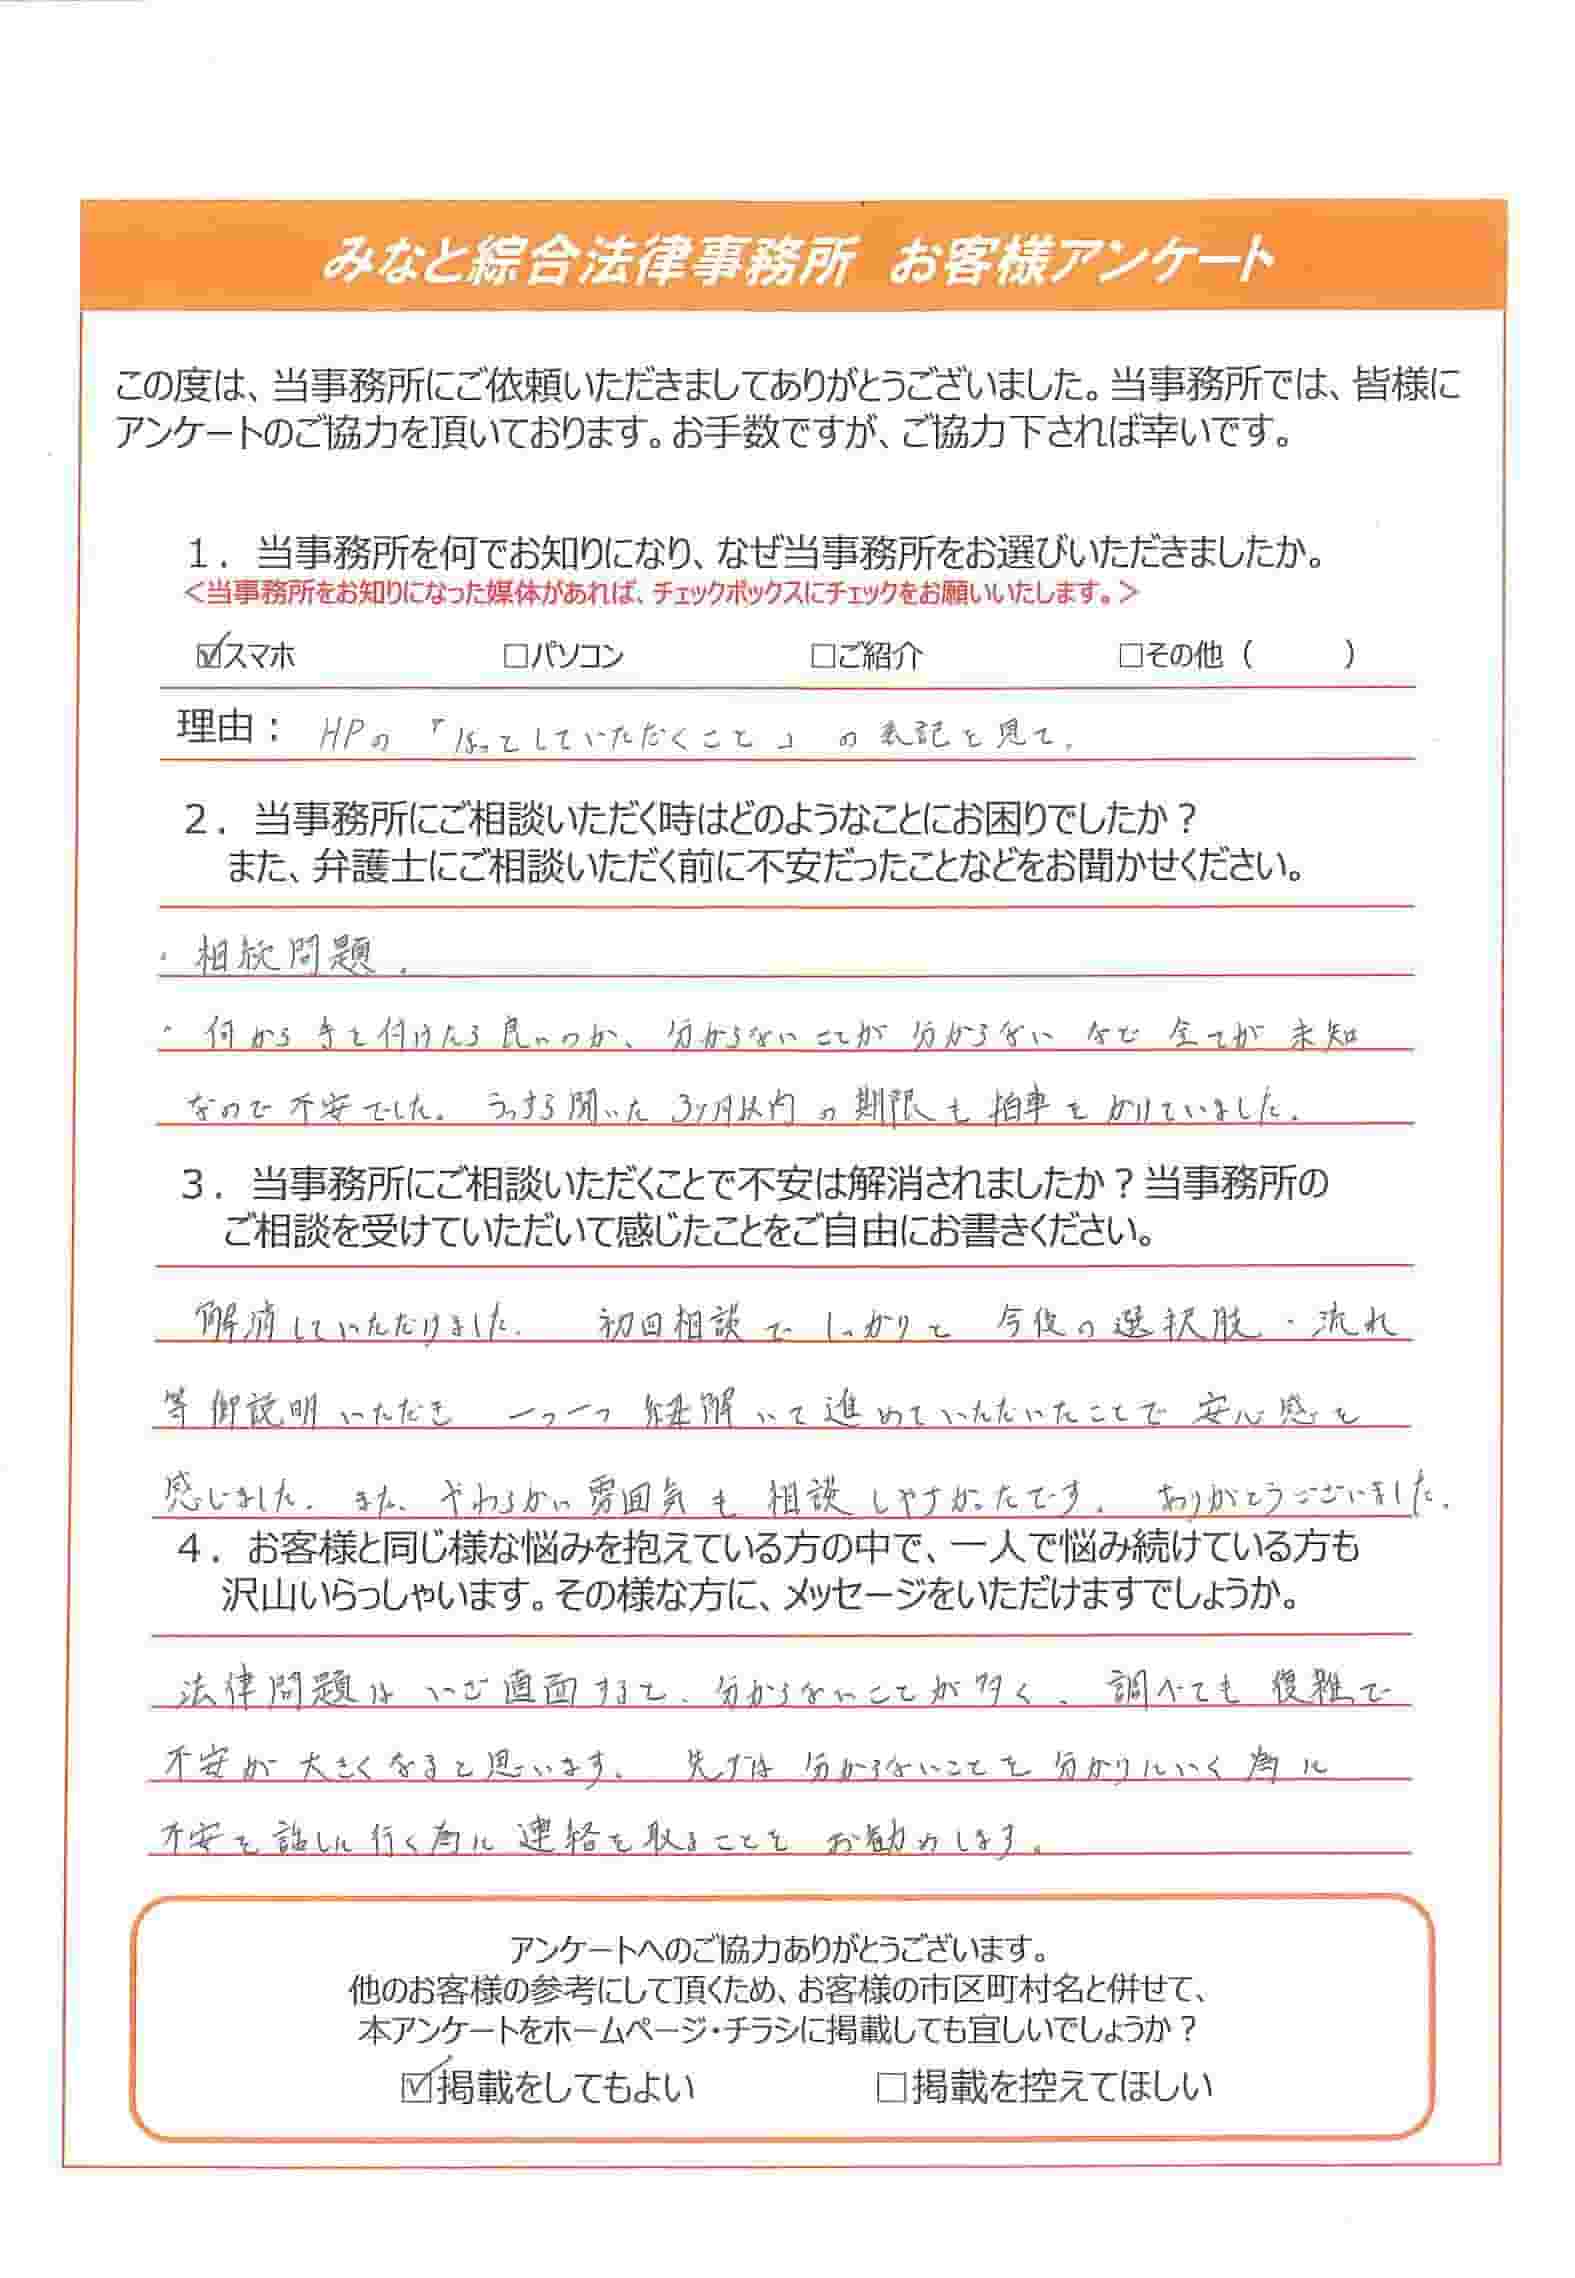 みなと綜合法律事務所 お客様アンケート
この度は、当事務所にご依頼いただきましてありがとうございました。当事務所では、皆様に
アンケートのご協力を頂いております。お手数ですが、ご協力下されば幸いです。
１．当事務所を何でお知りになり、なぜ当事務所をお選びいただきましたか。
＜当事務所をお知りになった媒体があれば、チェックボックスにチェックをお願いいたします。＞
☑スマホ □パソコン □ご紹介 □その他（ ）
理由： HPの「ほっとしていただくこと」の表記を見て。
２．当事務所にご相談いただく時はどのようなことにお困りでしたか？
また、弁護士にご相談いただく前に不安だったことなどをお聞かせください。
・相続問題．
・何から手を付けたら良いのか、分からないことが分からないなど全てが未知
なので不安でした。うっすら聞いた3ヶ月以内の期限も拍車をかけていました。
３．当事務所にご相談いただくことで不安は解消されましたか？当事務所の
ご相談を受けていただいて感じたことをご自由にお書きください。
解消していただけました。初回相談でしっかりと今後の選択肢・流れ
等御説明いただき一つ一つ紐解いて進めていただいたことで安心感を
感じました。また、やわらかい雰囲気も相談しやすかったです。ありがとうございました。
４．お客様と同じ様な悩みを抱えている方の中で、一人で悩み続けている方も
沢山いらっしゃいます。その様な方に、メッセージをいただけますでしょうか。
法律問題はいざ直面すると、分からないことが多く、調べても複雑で
不安が大きくなると思います。先ずは分からないことを分かりにいく為に
不安を話しに行く為に連絡を取ることをお勧めします。
アンケートへのご協力ありがとうございます。
他のお客様の参考にして頂くため、お客様の市区町村名と併せて、
本アンケートをホームページ・チラシに掲載しても宜しいでしょうか？
☑掲載をしてもよい □掲載を控えてほしい